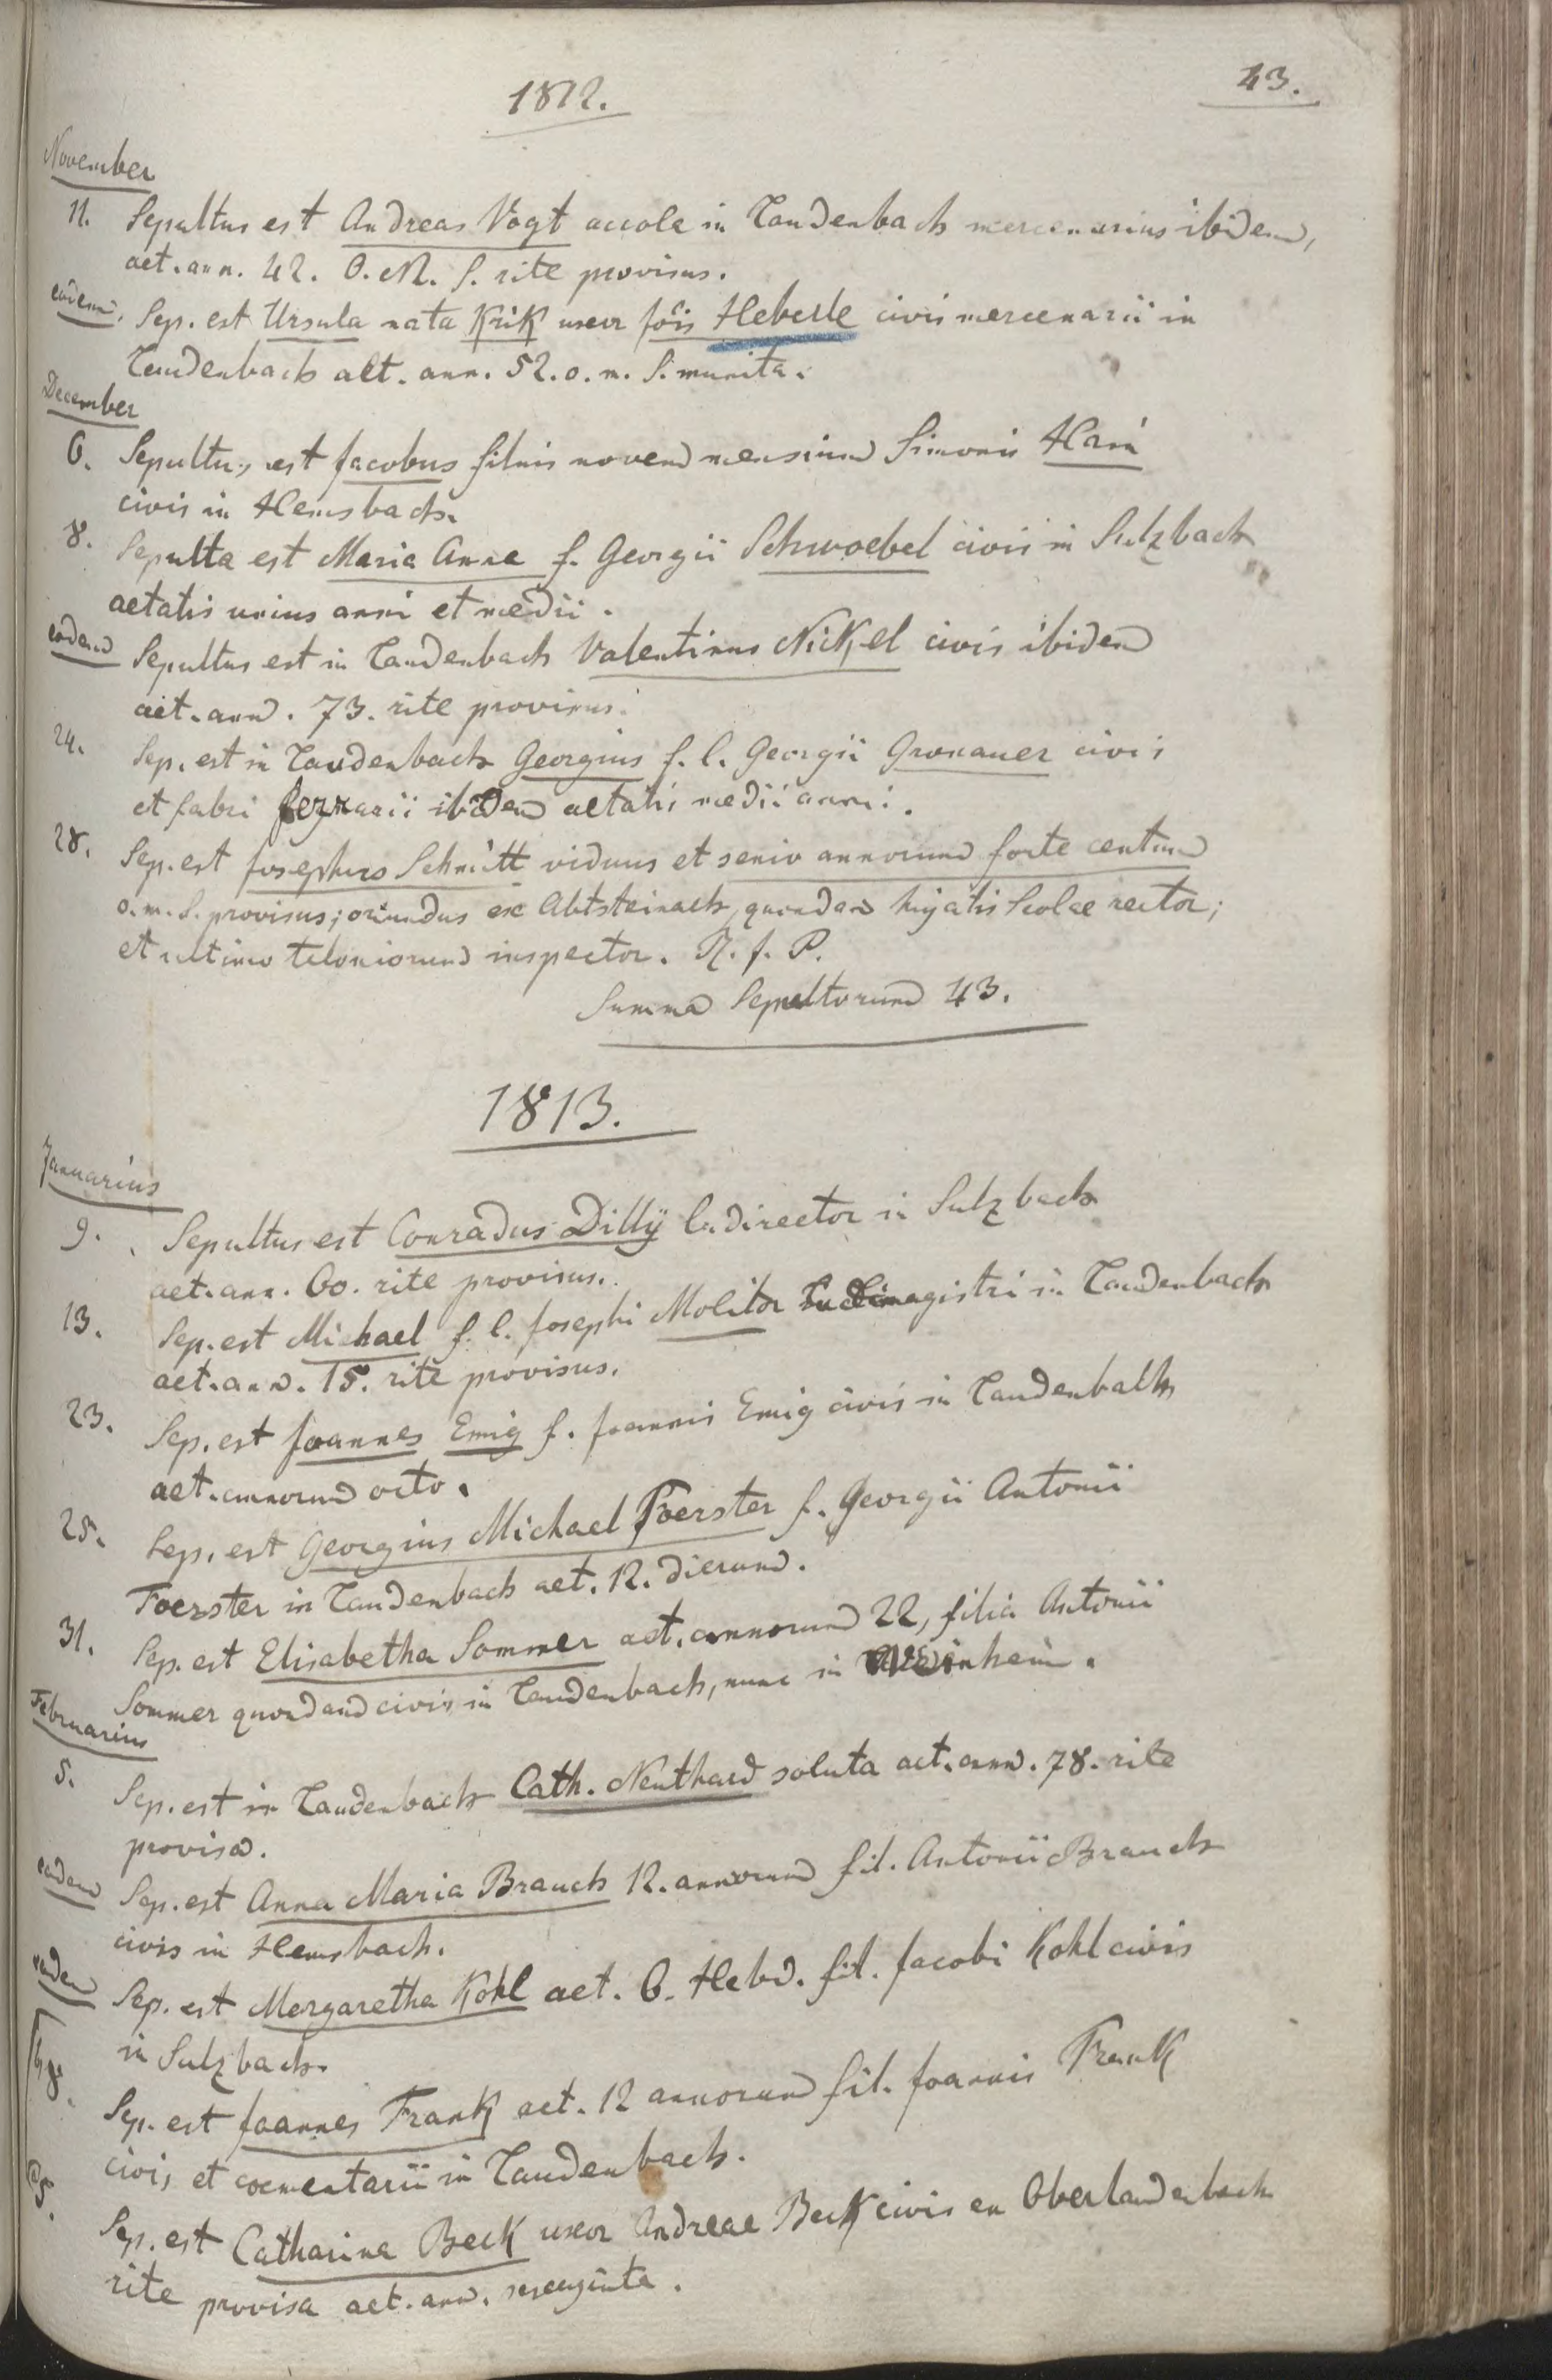 1812.
43.
November
11. Sepultus est Andreas Vogt accola in Laudenbach mercenarius ibidem,
aet. ann. 42. O. M. S. rite provisus.
eodem. Sep. est Ursula nata Krik uxor Jois Heberle civis mercenarii in
Laudenbach aet. ann. 52. o. m. S. munita.
December
6. Sepultus est Jacobus filius novem mensium Simonis
civis in Hemsbach.
8. Sepulta est Maria Anna f. Georgii Schwoebel civis in Sulzbach
aetatis unius anni et medii.
eodem Sepultus est in Laudenbach Valentinus Nickel civis ibidem
aet. ann. 73. rite provisus.
24. Sep. est in Laudenbach Georgius f. l. Georgii Gronauer civis
et fabri ferrarii ibidem aetatis medii anni.
28. Sep. est Josephus Schmitt viduus et senior annorum forte centum
o. m. S. provisus; oriundus ex Abtsteinach, quondam hujatis Scolae rector;
et ultimo teloniorum inspector. R. J. P.
Summa Sepultorum 43.
1813.
Januarius
9. Sepultus est Conradus Dillÿ ludirector in Sulzbach
aet. ann. 60. rite provisus.
13. Sep. est Michael f. l. Josephi Molitor Ludimagistri in Laudenbach
aet. ann. 15. rite provisus.
23. Sep. est Joannes Emig f. Joannis Emig civis in Laudenbach
aet. annorum octo.
25. Sep. est Georgius Michael Foerster f. Georgii Antonii
Foerster in Laudenbach aet. 12. dierum.
31. Sep. est Elisabetha Sommer aet. annorum 22, filia Antonii
Sommer quondam civis in Laudenbach, nunc in Weinheim.
Februarius
5. Sep. est in Laudenbach Cath. Neuthard soluta aet. ann. 78. rite
provisa.
eodem Sep. est Anna Maria Brauch 12. annorum fil. Antonii Brauch
civis in Hemsbach.
eodem Sep. est Margaretha Kohl aet. 6. Hebd. fil. Jacobi Kohl civis
in Sulzbach.
Sep. est Joannes Frank aet. 12 annorum fil. Joannis Frank
civis et coementarii in Laudenbach.
Sep. est Catharina Beck uxor Andreae Beck civis ex Oberlaudenbach
rite provisa aet. ann. sexaginta.